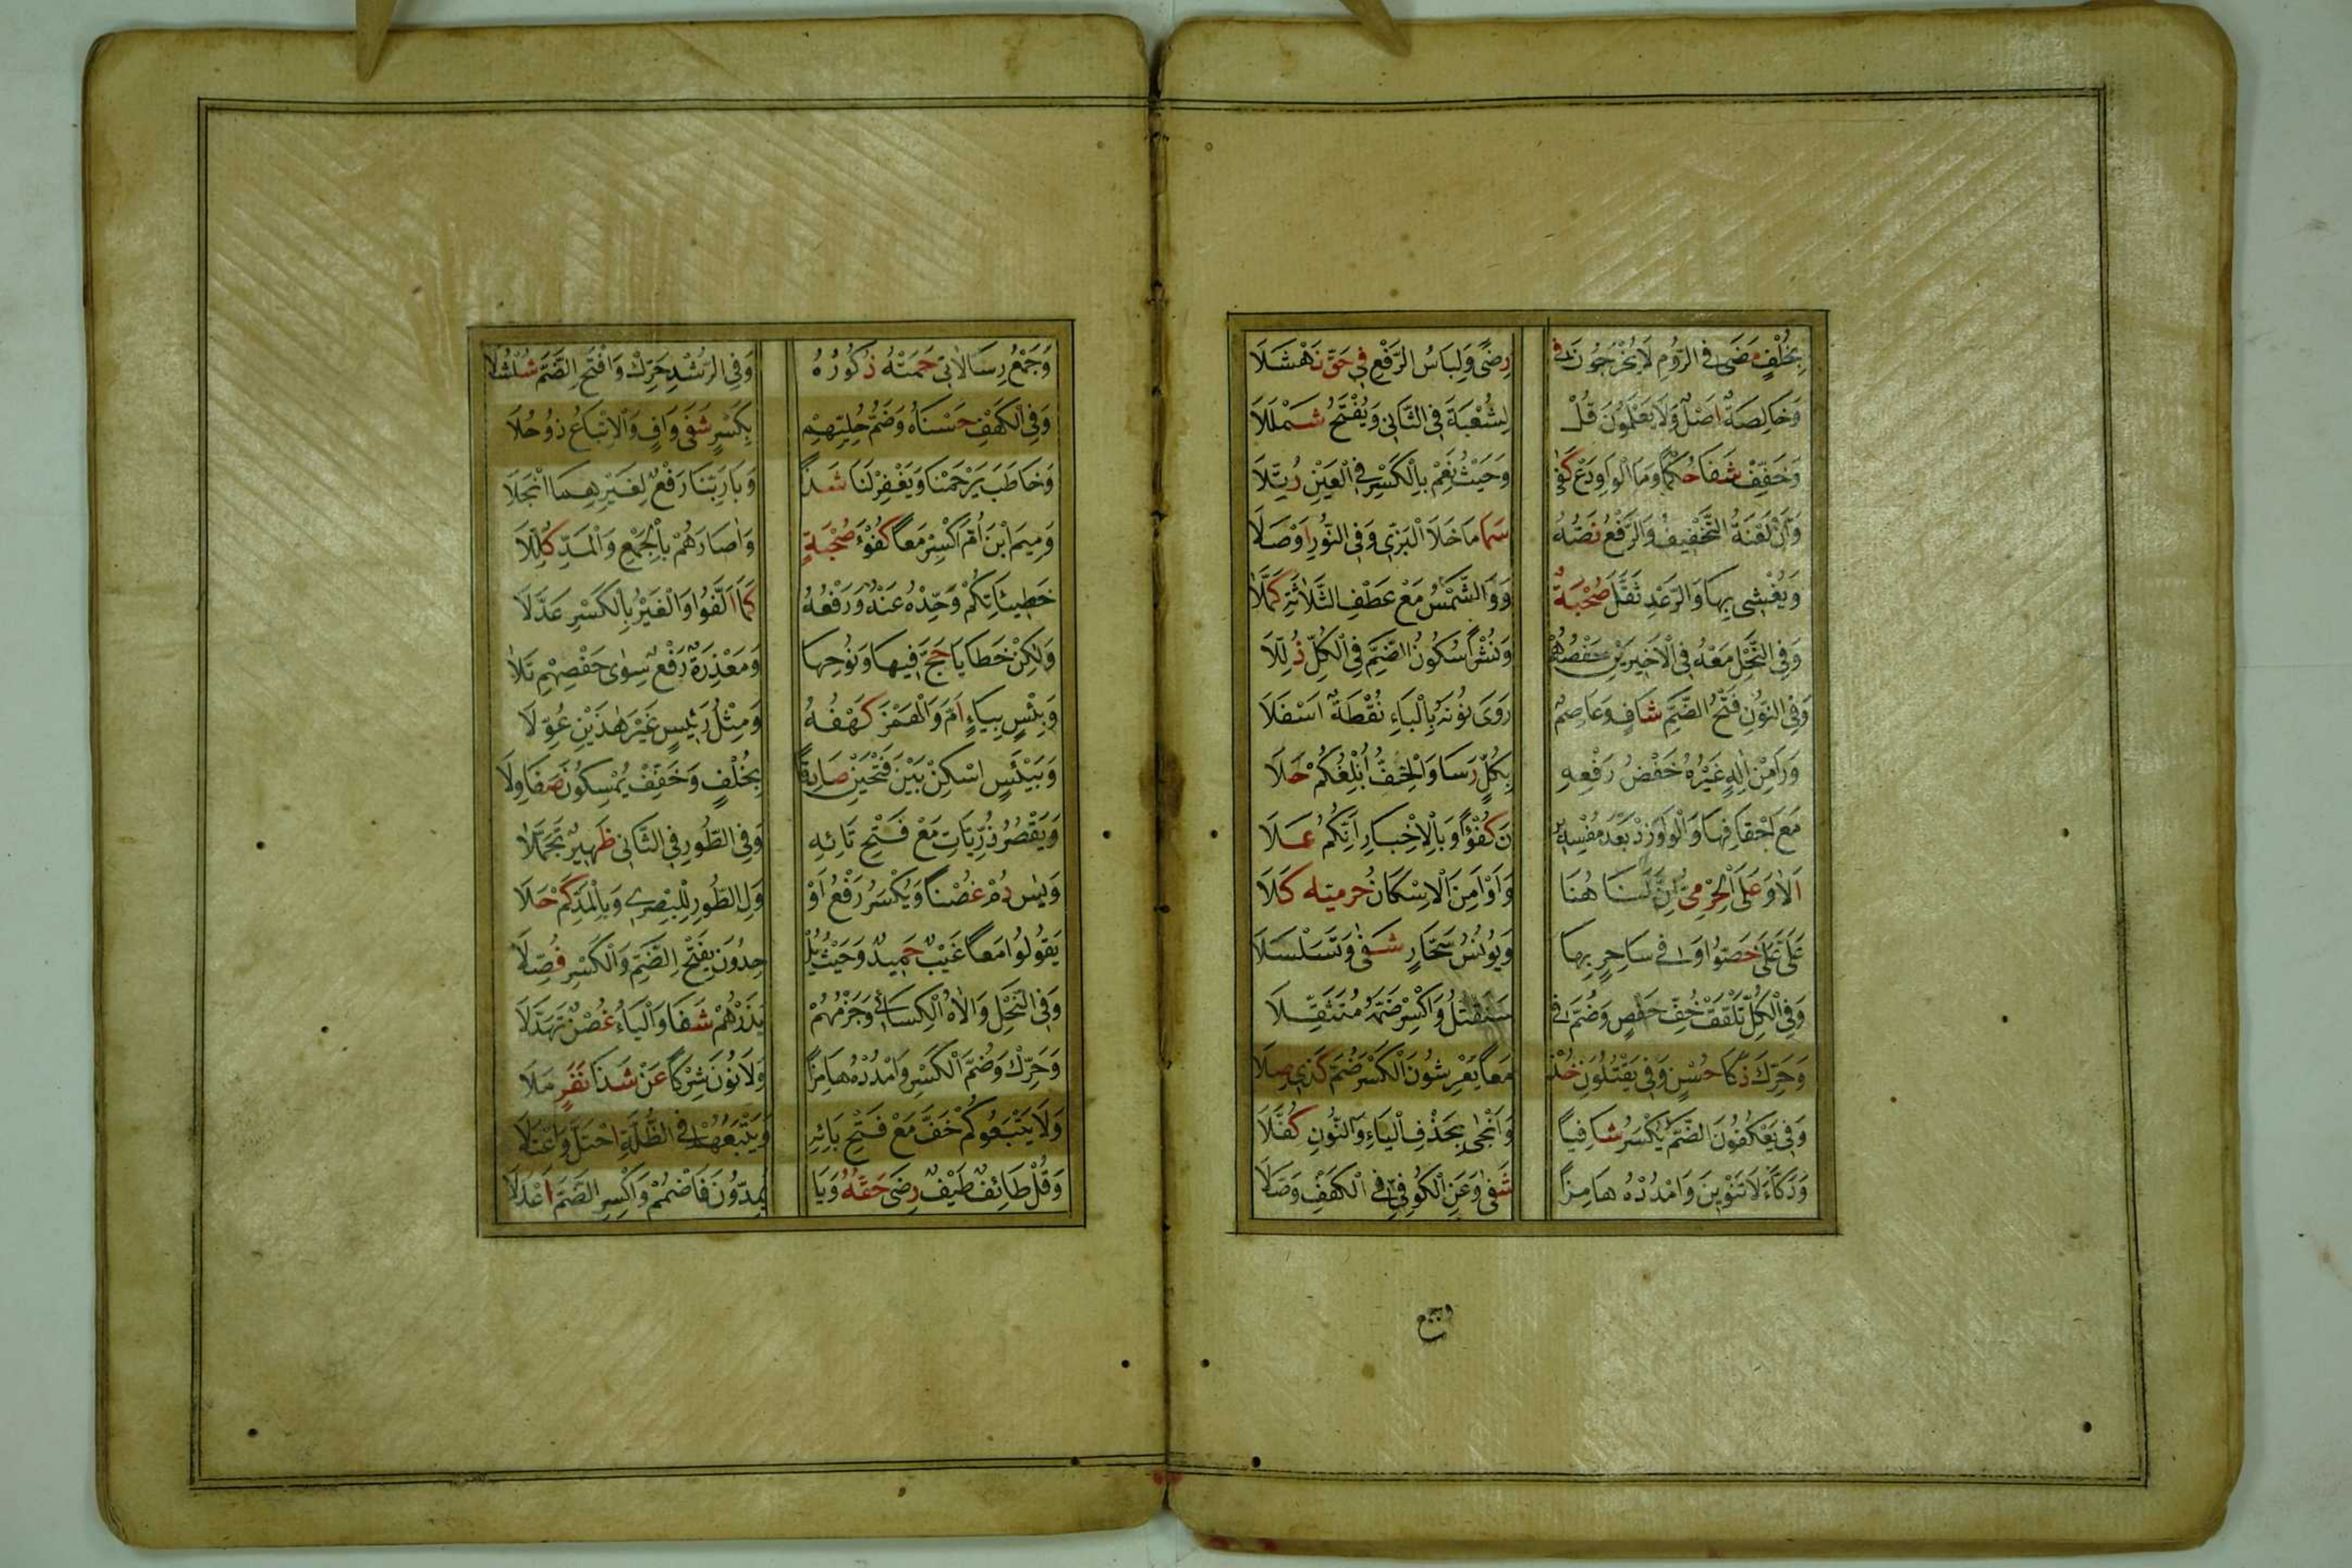 بِخُلْفٍ مَضَى فِي الرُّومِ لَا يَخْرُجُونَ فِي رِضًى وَلِبَاسُ الرَّفْعِ فِي حَقِّ نَهْشَلَا
وَخَالِصَةٌ اَصْلٌ وَلَا يَعْلَمُونَ قُلْ لِشُعْبَةَ فِي الثَّانِي وَيُفْتَحُ شَمْلَلَا
وَخَفِّفْ شَفَا حُكْمًا وَمَا الْوَاوَ دَعْ كَفٰى وَحَيْثُ نَعَمْ بِالْكَسْرِ فِي الْعَيْنِ رُتِّلَا
وَاَنْ لَعْنَةُ التَّخْفِيفُ وَالرَّفْعُ نَصُّهُ سَمَا مَا خَلَا الْبَزِّي وَفِي النُّورِ اُوْصِلَا
وَيُغْشِي بِهَا وَالرَّعْدِ ثَقَّلَ صُحْبَةٌ وَوَالشَّمْسُ مَعْ عَطْفِ الثَّلَاثَةِ كَمَّلَا
وَفِي النَّحْلِ مَعْهُ فِي الْاَخِيرَيْنِ حَفْصُهُمْ وَنُشْرًا سُكُونُ الضَّمِّ فِي الْكُلِّ ذُلِّلَا
وَفِي النُّونِ فَتْحُ الضَّمِّ شَافٍ وَعَاصِمٌ رَوَى نُونَهُ بِالْبَاءِ نُقْطَةٌ اَسْفَلَا
وَرَا مِنْ اِلٰهٍ غَيْرُهُ خَفْضُ رَفْعِهِ بِكُلٍّ رَسَا وَالْخِفُّ اُبْلِغُكُمْ حَلَا
مَعَ اَحْقَافِهَا وَالْوَاوَ زِدْ بَعْدَ مُفْسِدِيـ نَ كُفْؤًا وَبِالْاِخْبَارِ اِنَّكُمْ عَلَا
اَلَا وَعَلَى الْحِرْمِيُّ اِنَّ لَنَا هُنَا وَاَوْ اَمِنَ الْاِسْكَانُ حرميّه كَلَا
عَلَيَّ عَلَى خَصُّوا وَفِي سَاحِرٍ بِهَا وَيُونُسَ سَحَّارٍ شَفٰى وَتَسَلْسَلَا
وَفِي الْكُلِّ تَلْقَفْ خِفُّ حَفْصٍ وَضُمَّ فِي سَنَقْتُلُ وَاكْسِرْ ضَمَّهُ مُتَثَقِّلَا
وَحَرِّكْ ذَكَا حُسْنٍ وَفِي يَقْتُلُونَ خُذْ مَعًا يَعْرِشُونَ الْكَسْرُ ضُمَّ كَذِي صِلَا
وَفِي يَعْكُفُونَ الضَّمُّ يُكْسَرُ شَافِيًا وَاَنْجٰى بِحَذْفِ الْيَاءِ وَالنُّونِ كُفِّلَا
وَدَكَّاءَ لَا تَنْوِينَ وَامْدُدْهُ هَامِزًا شَفٰى وَعَنِ الْكُوفِيِّ فِي الْكَهْفِ وُصِّلَا
وجمع
وَجَمْعُ رِسَالَاتِي حَمَتْهُ ذُكُورُهُ وَفِي الرُّشْدِ حَرِّكْ وَافْتَحِ الضَّمَّ شُلْشُلَا
وَفِي الْكَهْفِ حُسْنَاهُ وَضَمُّ حُلِيِّهِمْ بِكَسْرٍ شَفَى وَافٍ وَالْاِتْبَاعُ ذُو حُلَا
وَخَاطَبَ يَرْحَمْنَا وَيَغْفِرْ لَنَا شَذًا وَبَا رَبَّنَا رَفْعٌ لِغَيْرِهِمَا انْجَلَا
وَمِيمَ ابْنَ اُمَّ اكْسِرْ مَعًا كُفْؤَ صُحْبَةٍ وَاٰصَارَهُمْ بِالْجَمْعِ وَالْمَدِّ كُلِّلَا
خَطِيئَاتُكُمْ وَحِّدْهُ عَنْهُ وَرَفْعُهُ كَمَا اَلَّفُوا وَالْغَيْرُ بِالْكَسْرِ عَدَّلَا
وَلٰكِنْ خَطَايَا حَجَّ فِيهَا وَنُوحِهَا وَمَعْذِرَةٌ رَفْعٌ سِوٰى حَفْصِهِمْ تَلَا
وَبِيسٍ بِيَاءٍ اَمَّ وَالْهَمْزُ كَهْفُهُ وَمِثْلُ رَئِيسٍ غَيْرُ هٰذَيْنِ عَوَّلَا
وَبَيْئَسٍ اسْكِنْ بَيْنَ فَتْحَيْنِ صَادِقًا بِخُلْفٍ وَخَفِّفْ يُمْسِكُونَ صَفَا وِلَا
وَيَقْصُرُ ذُرِّيَّاتِ مَعْ فَتْحِ تَائِهِ وَفِي الطُّورِ فِي الثَّانِي ظَهِيرٌ تَحَمَّلَا
وَيٰس دُمْ غُصْنًا وَيُكْسَرُ رَفْعُ اَوْ وَلِ الطُّورِ لِلْبَصْرِي وَبِالْمَدِّ كَمْ حَلَا
يَقُولُوا مَعًا غَيْبٌ حَمِيدٌ وَحَيْثُ يُلْـ حِدُونَ بِفَتْحِ الضَّمِّ وَالْكَسْرِ فُصِّلَا
وَفِي النَّحْلِ وَالَاهُ الْكِسَائِي وَجَزْمُهُمْ يَذَرْهُمْ شَفَا وَالْيَاءُ غُصْنٌ تَهَدَّلَا
وَحَرِّكْ وَضُمَّ الْكَسْرَ وَامْدُدْهُ هَامِزًا وَلَا نُونَ شِرْكًا عَنْ شَذَا نَفَرٍ مَلَا
وَلَا يَتْبَعُوكُمْ خَفَّ مَعْ فَتْحِ بَائِهِ وَيَتْبَعُهُمْ فِي الظُّلَّةِ احْتَلَّ وَاعْتَلَا
وَقُلْ طَائِفٌ طَيْفٌ رِضَى حَقُّهُ وَيَا يَمُدُّونَ فَاضْمُمْ وَاكْسِرِ الضَّمَّ اَعْدَلَا